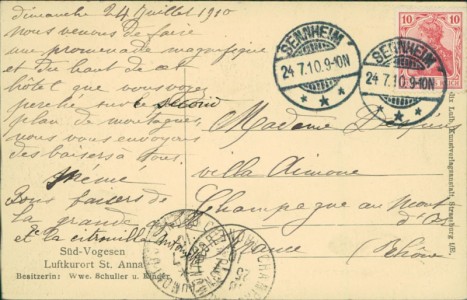 dimanche 24 Juillet 1910
nous venons de faire
une promenade magnifique
et du haut de cet
hôtel que vous voyez
perché sur le second
plan de montagnes,
nous vous envoyons
des baisers à tous.
Bons baisers de
la grande
et la citrouille
SENNHEIM
24 7.10.9-10N
SENNHEIM
24 7.10.9-10N
10 10
Madame
villa Aimone
Champagne au Mont
d'Or
France (Rhône)
Süd-Vogesen
Luftkurort St. Anna
Besitzerin: Wwe. Schuller u. Kinder
Luib, Kunstverlagsanstalt, Strassburg i/E.